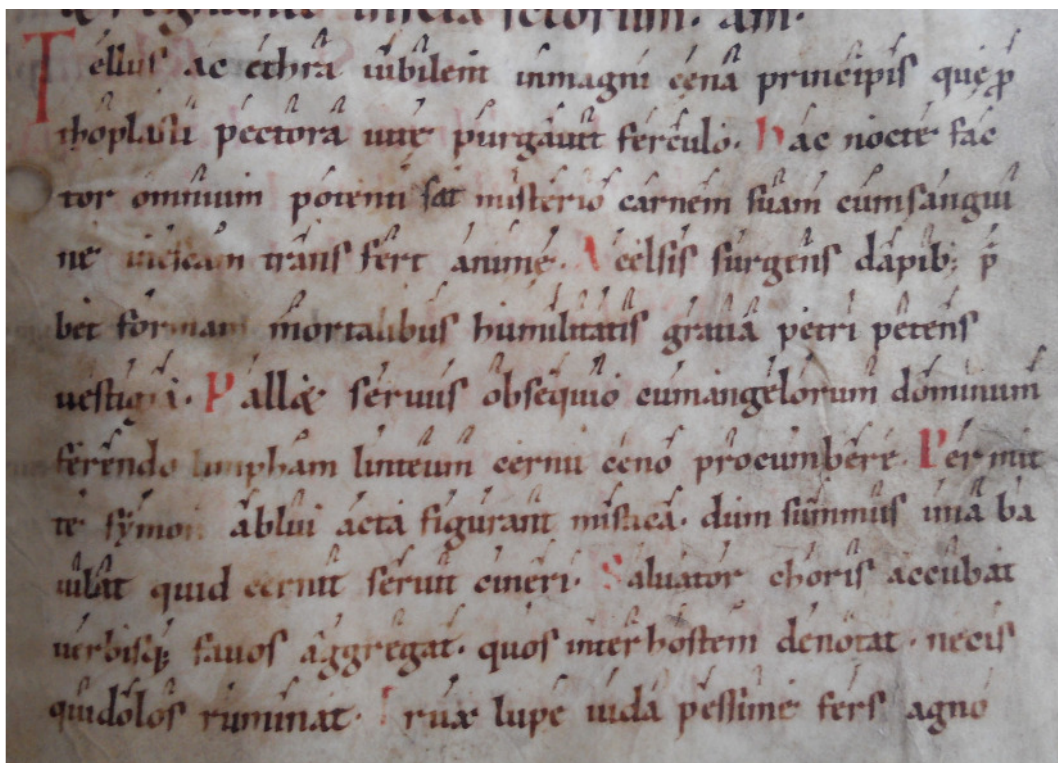 sc̄torum. am.
Tellus ac ethra iubilent inmagni cena principis quę p̄
thoplasti pectora uitę purgauit ferculo. hac nocte fac
tor omnium potenti sat misterio carnem suam cumsangui
ne in escam trans fert animę. A celsis surgens dapib; p̄
bet formam mortalibus humilitatis gratia petri petens
uestigia. Pallet seruus obsequio cumangelorum dominum
ferendo limpham linteum cernit ceno procumbere. Per mit
te symon ablui acta figurant mistica. dum summus ima ba
iulat quid cernit seruit cineri. Saluator choris accubat
uerbisq; fauos aggregat. quos inter hostem denotat. necis
quidolos ruminat. Trux lupe iuda pessime fers agno